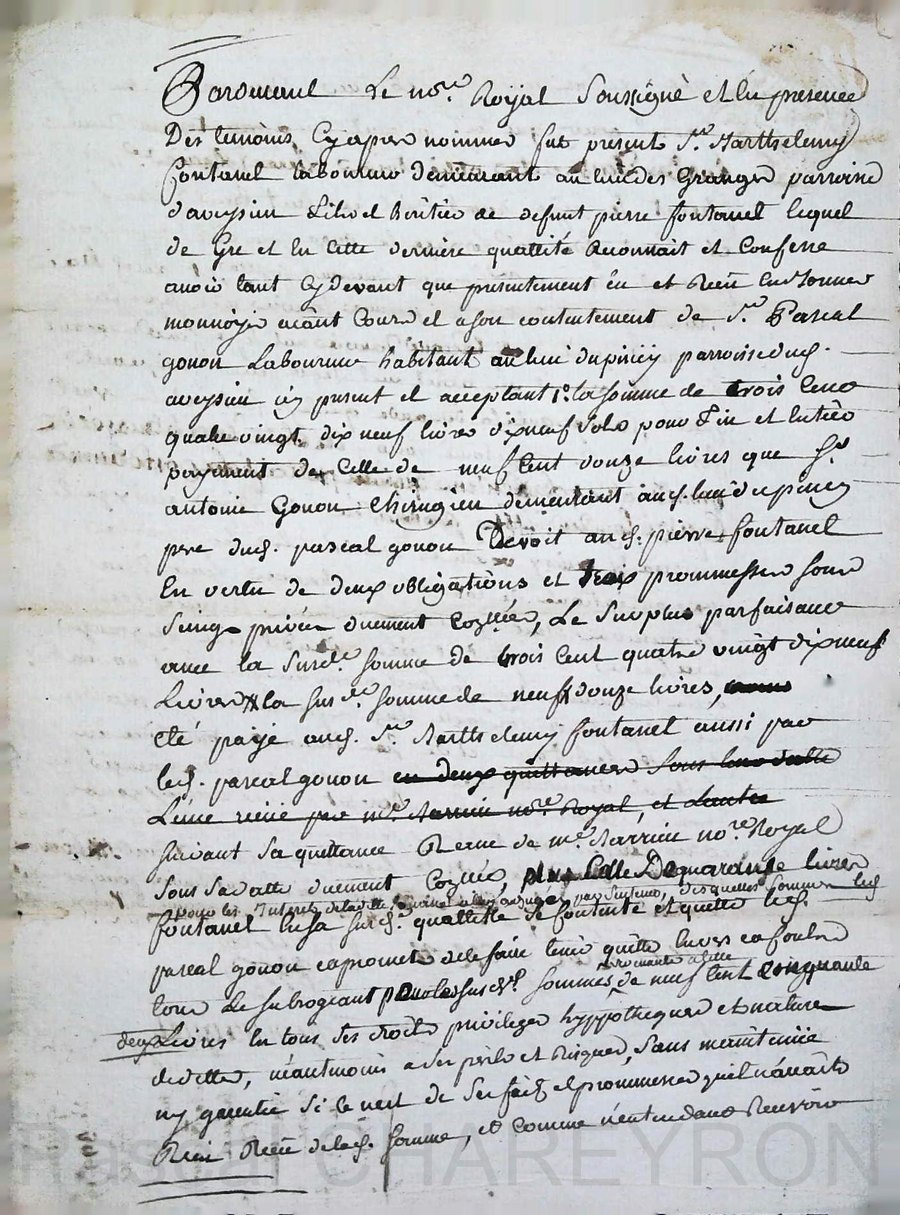 Pardevant Le no.re Royal Soussigné et En presence
Des temoins Cyapres nommes fut present S.r Barthelemy
fontanel laboureur demeurant au lieu des Granges parroisse
daveysieu fils et heritier de defunt pierre fontanel lequel
de Gre et En Cette derniere quallité Reconnait et Confesse
avoir tant Cy devant que presentement eu et Reçu En bonnes
monnoyes aiant Cours et a son contentement de S.r Pascal
gonon Laboureur habitant au lieu dupiney parroisse dud.
aveysieu icy present et acceptant 1.o la somme de trois Cent
quatre vingt dix neuf livres dixneuf sols pour fin et Entier
payement de Celle de neuf Cent douze livres que S.r
antoine Gonon Chirugien demeurant aud. lieu dupiney
pere dud. pascal gonon Devoit aud. pierre fontanel
En vertu de deux obligations et prommesses sous
Seings privés duement Conllées, Le Surplus parfaisant
avec la Susd.e somme de trois Cent quatre vingt dixneuf
Livres la sus.de somme de neuf douze livres,
eté payé aud. S.r Barthelemy fontanel aussi par
led. pascal gonon en deux quittances Sous leurs datte
L'une reçue par m.e Barrieu no.re Royal, et Lautre
suivant Sa quittance Recue de m.e Barrieu no.re Royal
Sous Sa datte duement Conllée, plus Celle De quarante livres
pour les Interets de laditte somme par sentence, desquelles sommes led.
fontanel En sa susd.e quallitée se contente et quitte led.
pascal gonon et promet de le faire tenir quitte Envers et contre
revenante a celle
tous Le subrogeant pour les susd.es sommes de neuf Cent Cinquante
deux Livres En tous ses droits privileges hyppotheques et nature
de dette, néantmoins a ses perils et Risques, Sans maintenüe
ny garentie Si ce nest de Ses faits et prommesses quil n'avait
Rien Reçu de lad. somme, et Comme n'entendant Recevoir
Rascal CHAREYRON